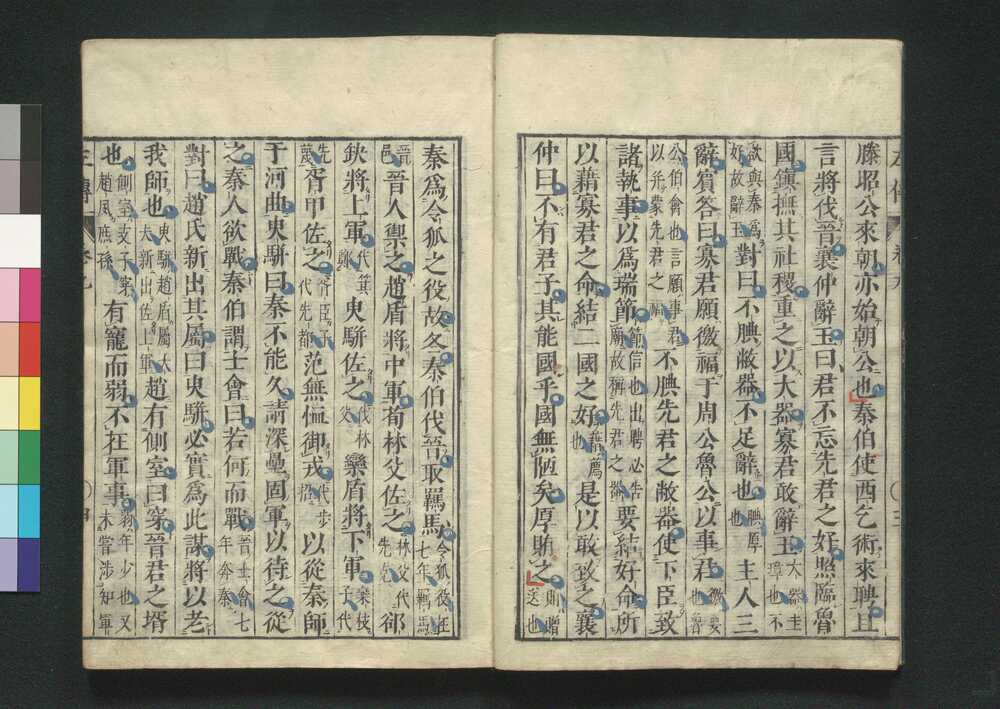 滕昭公來朝亦始朝公也秦伯使西乞術來聘且
言將伐晉襄仲辭玉曰君不忘先君之好照臨魯
國鎮撫其社稷重之以大器寡君敢辭玉大器圭璋也不
欲與秦爲好故辭玉對曰不腆敝器不足辭也腆厚也主人三
辭賔答曰寡君願徼福于周公魯公以事君徼要也魯
公伯禽也言願事君以并蒙先君之福不腆先君之敝器使下臣致
諸執事以爲瑞節節信也出聘必告廟故稱先君之器要結好命所
以藉寡君之命結二國之好藉薦也是以敢致之襄
仲曰不有君子其能國乎國無陋矣厚賄之賄贈送也
秦爲令狐之役故冬秦伯伐晉取羈馬令狐役在七年羈馬
晉邑晉人禦之趙盾將中軍荀林父佐之林父代先克郤
缺將上軍代箕鄭臾駢佐之代林父欒盾將下軍欒枝子代
先蔑胥甲佐之胥臣子代先都范無恤御戎代步招以從秦師
于河曲臾駢曰秦不能久請深壘固軍以待之從
之秦人欲戰秦伯謂士會曰若何而戰晉士會七年奔秦
對曰趙氏新出其屬曰臾駢必實爲此謀將以老
我師也臾駢趙盾屬大夫新出佐上軍趙有側室曰穿晉君之壻
也側室支子穿趙夙庶孫有寵而弱不在軍事弱年少也又未嘗涉知軍